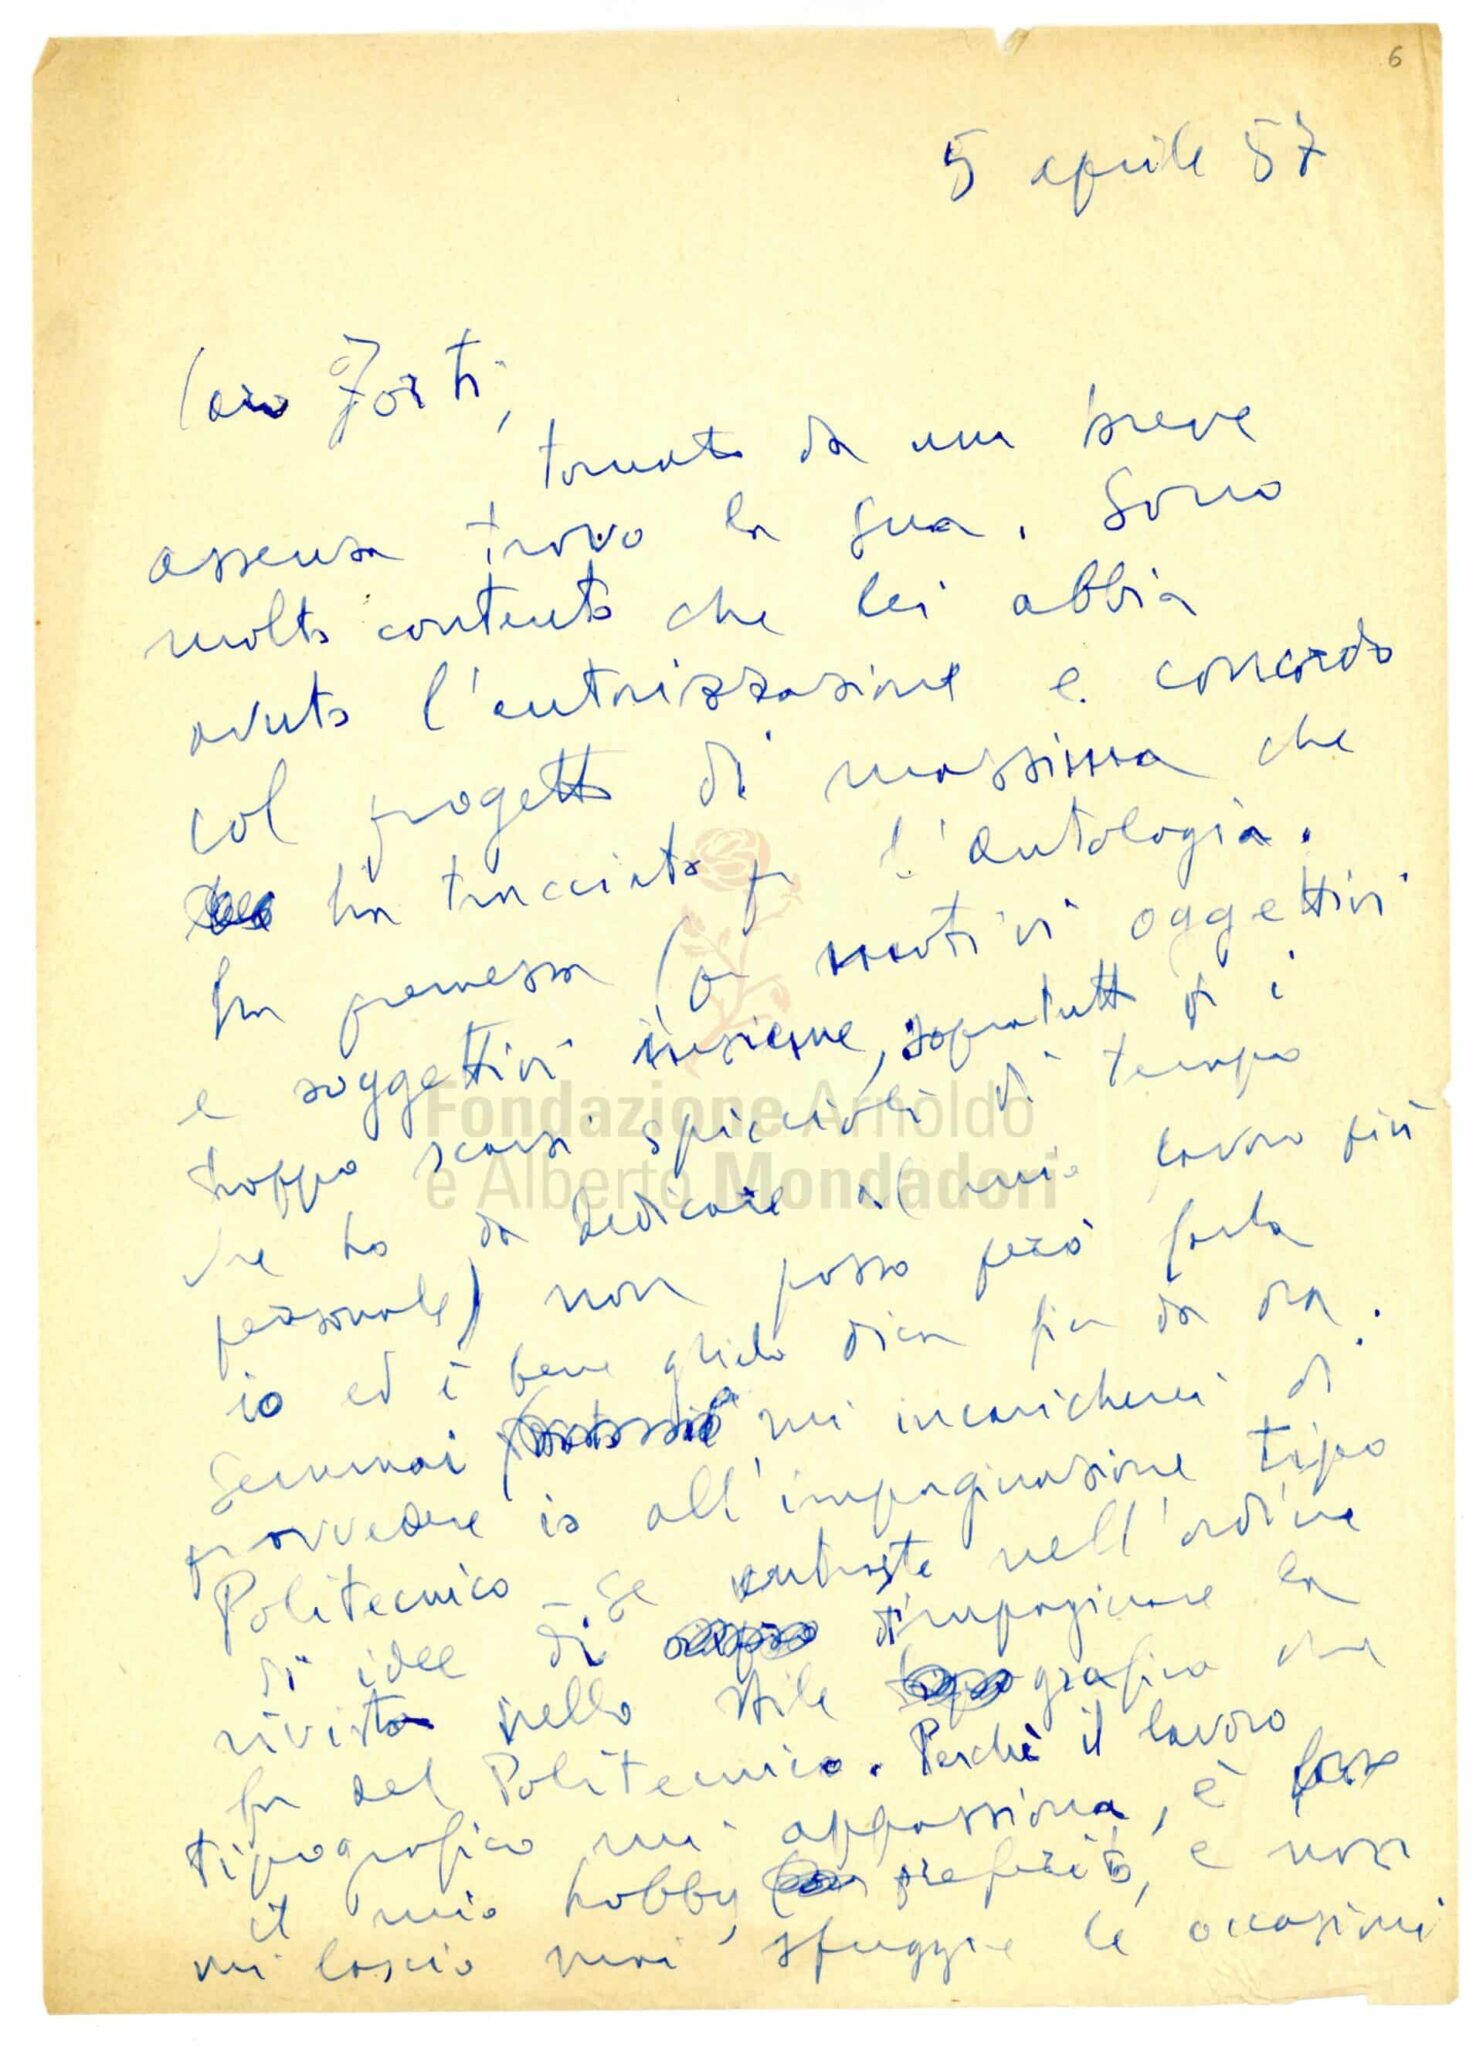 6
5 aprile 57
Caro Forti,
tornato da una breve
assenza trovo la Sua. Sono
molto contento che lei abbia
avuto l'autorizzazione e concordo
col progetto di massima che
ha tracciato p l'antologia.
La premessa (p motivi oggettivi
e soggettivi insieme, sopratutto di i
troppo scarsi spiccioli di tempo
che ho da dedicare al mio lavoro più
personale) non posso però farla
io ed è bene glielo dica fin da ora.
Semmai mi incaricherei di
provvedere io all'impaginazione tipo
Politecnico se entraste nell'ordine
di idee di d'impaginare la
rivista nello stile grafico che
fu del Politecnico. Perché il lavoro
tipografico mi appassiona, è forse
il mio hobby, preferito, e non
mi lascio mai sfuggire le occasioni
Fondazione Arnoldo
e Alberto Mondadori